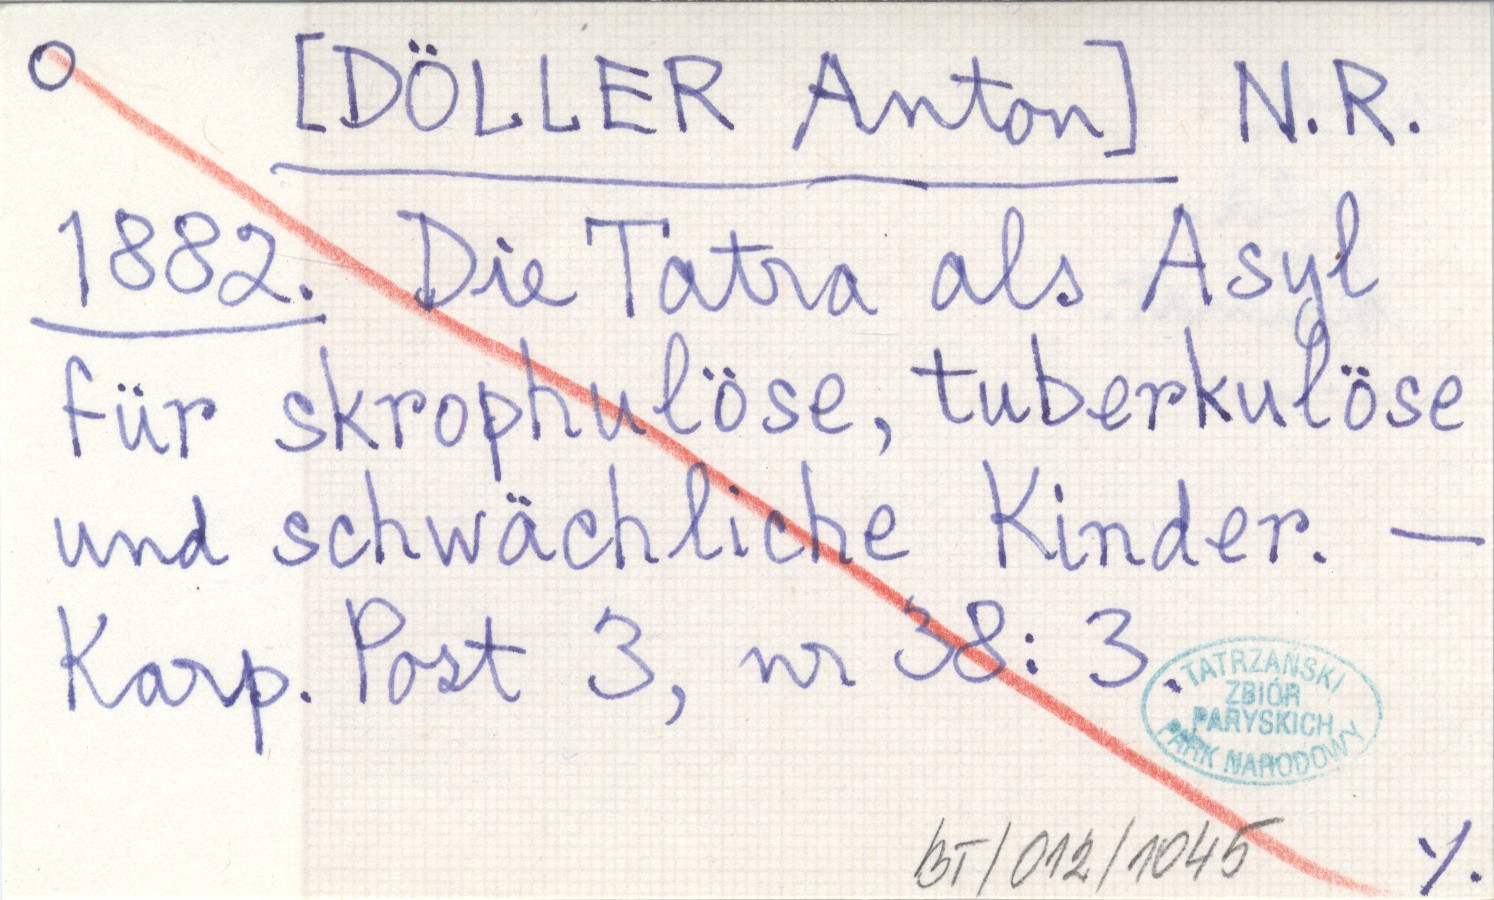 O [DÖLLER Anton] N.R.
1882. Die Tatra als Asyl
für skrophulöse, tuberkulöse
und schwächliche Kinder. —
Karp. Post 3, nr 38: 3.
TATRZAŃSKI
ZBIÓR
PARYSKICH
PARK NARODOWY
BT/012/1045
./.